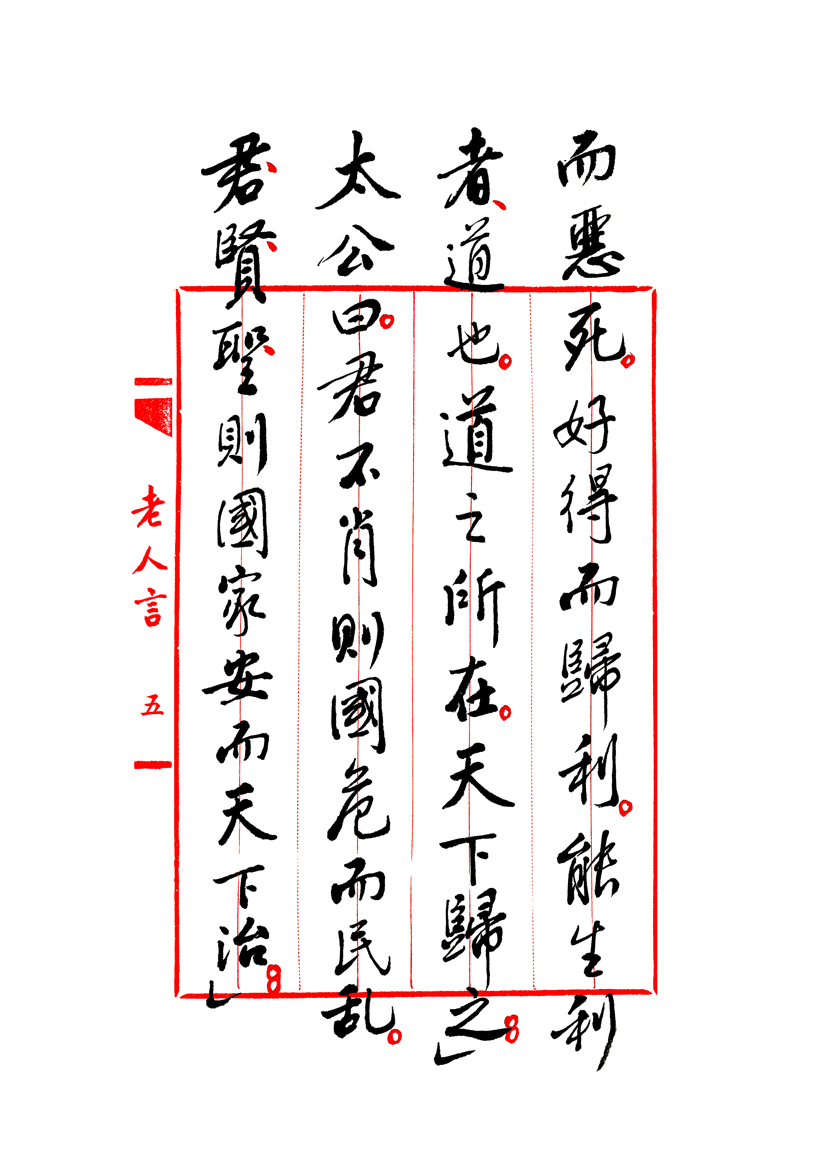 而惡死。好得而歸利。能生利
者、道也。道之所在。天下歸之。」
太公曰。君不肖則國危而民乱。
君、賢、聖、則國家安而天下治。」
老人言 五